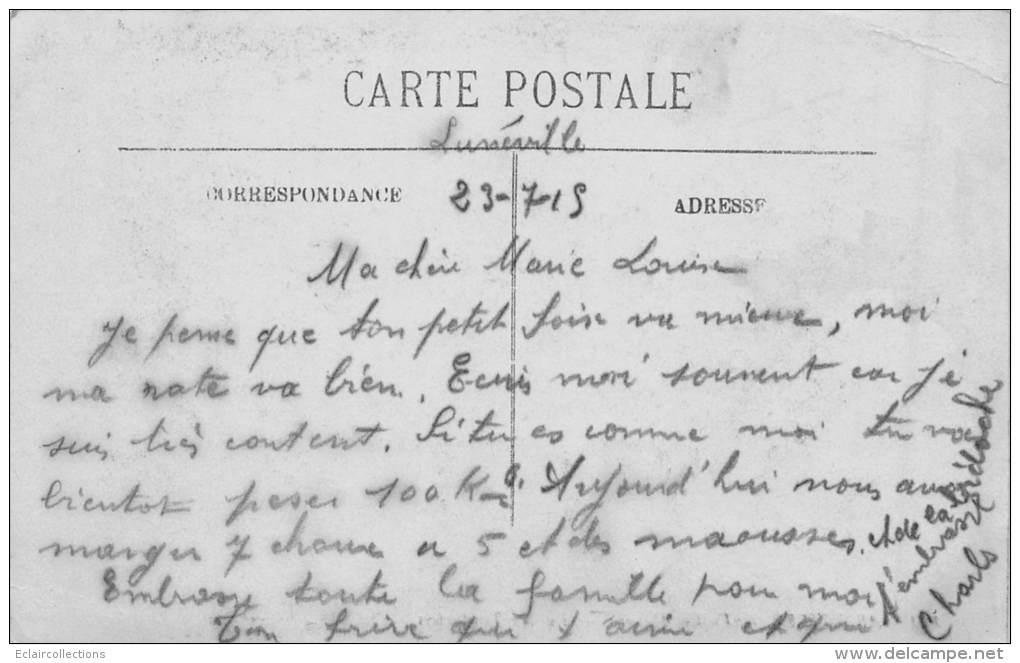 CARTE POSTALE
Lunéville
CORRESPONDANCE
23-7-15
ADRESSE
Ma chère Marie Louise
Je pense que ton petit foise va mieux, moi
ma rate va bien. Ecris moi souvent car je
suis très content. Si tu es comme moi tu vas
bientot peser 100 Kos. Aujourd'hui nous avons
manger 7 choux a 5 et des maousses, et de la
Embrasse toute la famille pour moi
Ton frère qui t'aime et qui
t'embrasse
Charles
Eclaircollections
www.delcampe.net